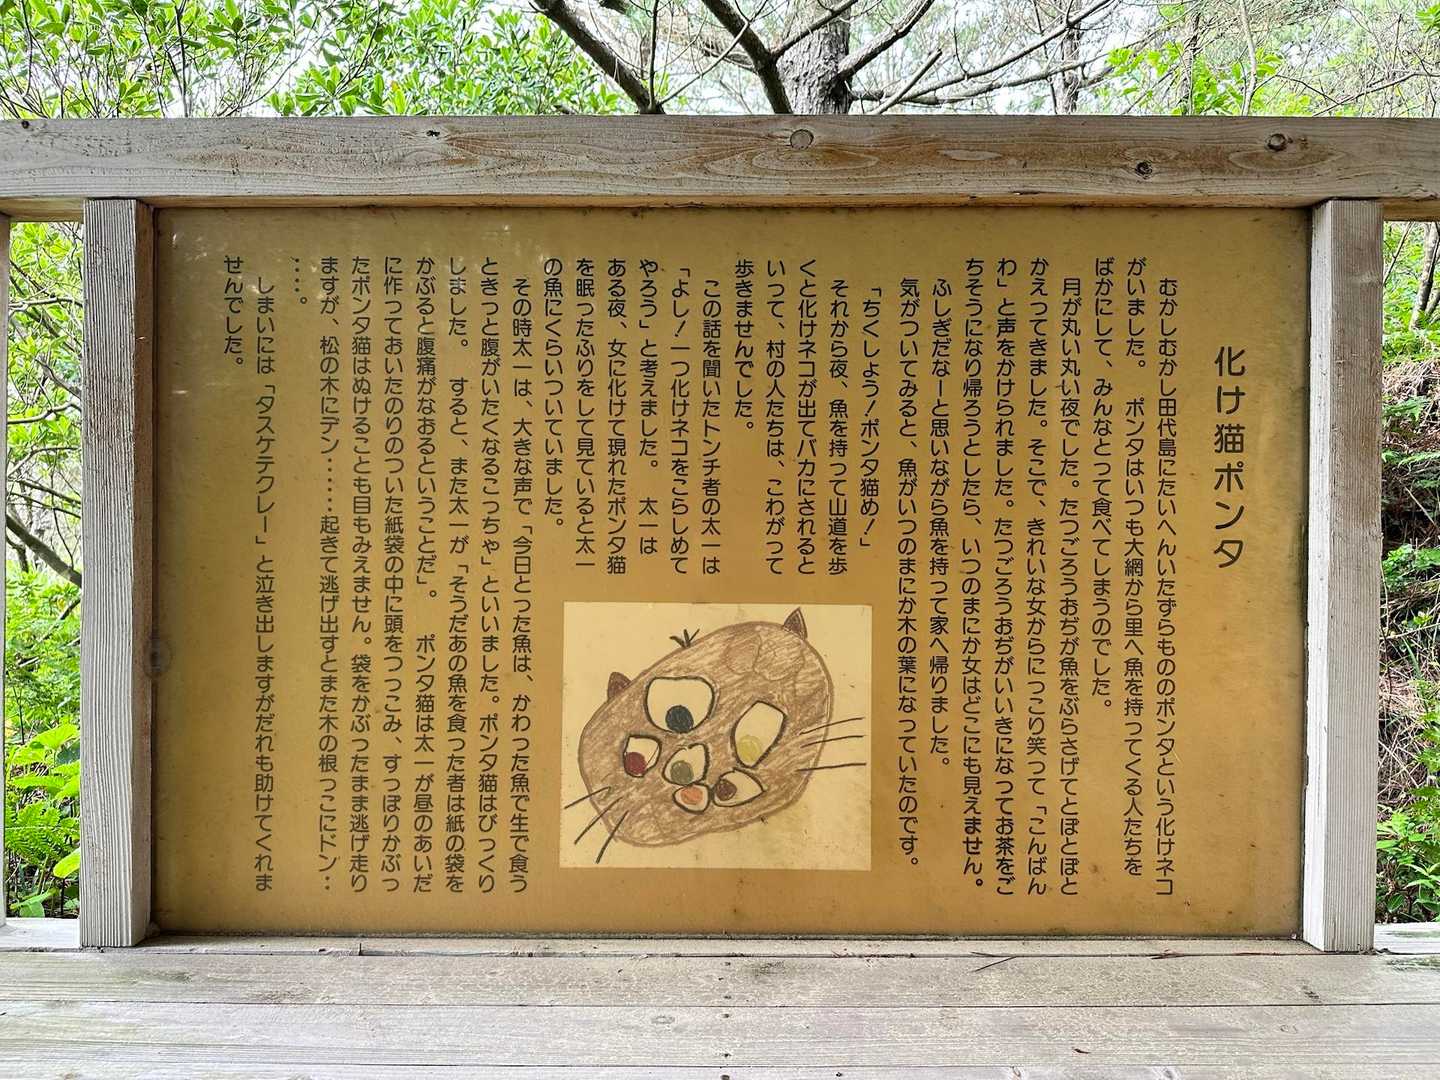 化け猫ポンタ
むかしむかし田代島にたいへんいたずらもののポンタという化けネコ
がいました。 ポンタはいつも大網から里へ魚を持ってくる人たちを
ばかにして、みんなとって食べてしまうのでした。
月が丸い丸い夜でした。たつごろうおぢが魚をぶらさげてとぼとぼと
かえってきました。そこで、きれいな女からにっこり笑って「こんばん
わ」と声をかけられました。たつごろうおぢがいいきになってお茶をご
ちそうになり帰ろうとしたら、いつのまにか女はどこにも見えません。
ふしぎだなーと思いながら魚を持って家へ帰りました。
気がついてみると、魚がいつのまにか木の葉になっていたのです。
「ちくしょう!ポンタ猫め!」
それから夜、魚を持って山道を歩
くと化けネコが出てバカにされると
いって、村の人たちは、こわがって
歩きませんでした。
この話を聞いたトンチ者の太一は
「よし!一つ化けネコをこらしめて
やろう」と考えました。 太一は
ある夜、女に化けて現れたポンタ猫
を眠ったふりをして見ていると太一
の魚にくらいついていました。
その時太一は、大きな声で「今日とった魚は、かわった魚で生で食う
ときっと腹がいたくなるこっちゃ」といいました。ポンタ猫はびっくり
しました。 すると、また太一が「そうだあの魚を食った者は紙の袋を
かぶると腹痛がなおるということだ」。 ポンタ猫は太一が昼のあいだ
に作っておいたのりのついた紙袋の中に頭をつっこみ、すっぽりかぶっ
たポンタ猫はぬけることも目もみえません。袋をかぶったまま逃げ走り
ますが、松の木にデン・・・・・起きて逃げ出すとまた木の根っこにドン・・
・・・・。
しまいには「タスケテクレー」と泣き出しますがだれも助けてくれま
せんでした。